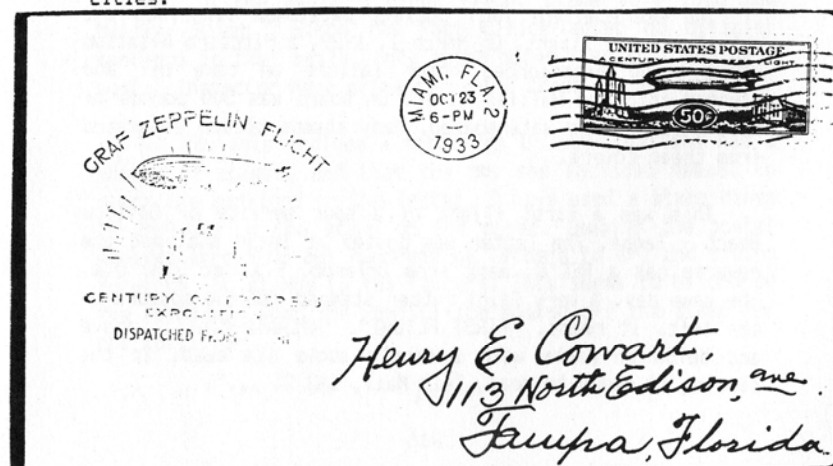 cities.
UNITED STATES POSTAGE
A CENTURY OF PROGRESS FLIGHT
50¢
MIAMI, FLA. 2
OCT 23
6-PM
1933
GRAF ZEPPELIN FLIGHT
CENTURY OF PROGRESS
EXPOSITION
DISPATCHED FROM
Henry E. Cowart.
113 North Edison, ave.
Tampa, Florida.